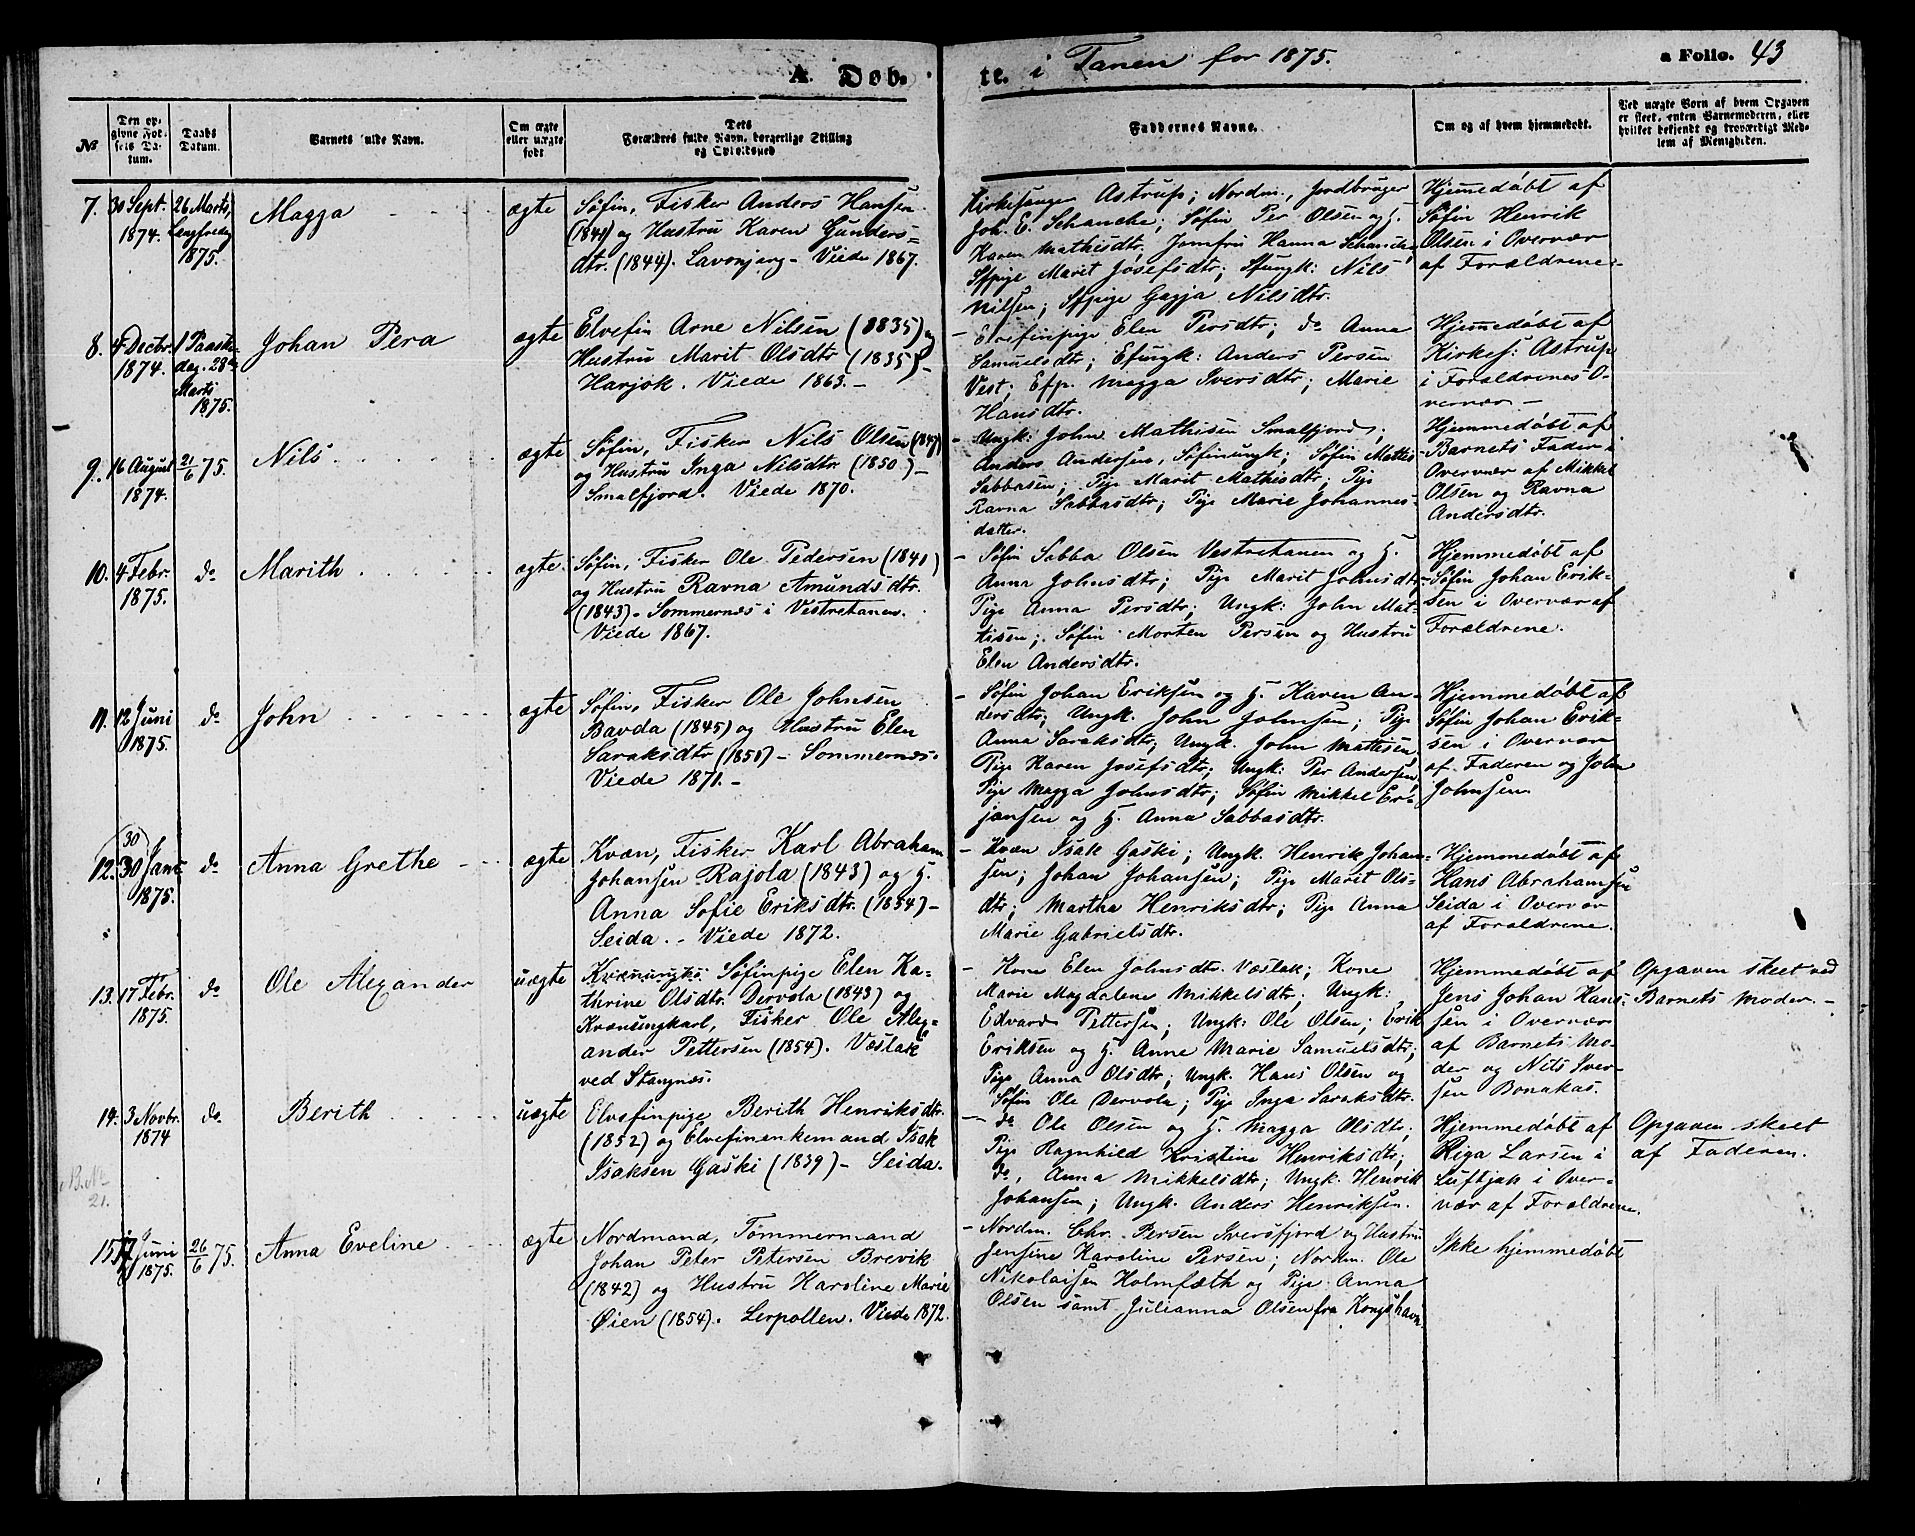 A. Døb-
te. i Tanen for 1875.
a Folio. 43
No
Den opgivne Fødsels Datum.
Daabs Datum.
Barnets fulde Navn.
Om ægte eller uægte født.
Dets Forældres fulde Navn, borgerlige Stilling og Opholdssted
Faddernes Navne.
Om og af hvem hjemmedøbt.
Ved uægte Børn af hvem Opgaven er skeet, enten Barnemoderen, eller hvilket bekjendt og troværdigt Medlem af Menigheden.
7.
30 Sept.
1874.
26 Marts,
Langfredag
1875.
Magga
ægte
Søfin, Fisker Anders Hansen
(1841) og Hustru Karen Gunders=
dtr. (1844). Lavonjarg - Viede 1867.
Kirkesanger Astrup; Nordm., Jordbruger
Joh. E. Schanche; Søfin Per Olsen og H.
Karen Mathisdtr, Jomfru Hanna Schanche,
Sfpige Marit Josefsdtr; Sfungk: Nils
Nilsen; Sfpige Gagja Nilsdtr.
Hjemmedøbt af
Søfin Henrik
Olsen i Overvær
af Forældrene.
8.
4 Decbr.
1874.
1 Paaske-
dag. 28de
Marts
1875.
Johan Pera
ægte
Elvefin Arne Nilsen (1835) og
Hustru Marit Olsdtr (1835) -
Harjok. Viede 1863. -
- Elvefinpige Elen Persdtr; do Anna
Samuelsdtr; Efungk: Anders Persen
Vest; Efp. Magga Iversdtr; Marie
Hansdtr.
Hjemmedøbt af
Kirkes: Astrup
i Forældrenes O-
vervær -
9.
16 August
1874.
21/6 75.
Nils
ægte
Søfin, Fisker Nils Olsen (1847)
og Hustru Inga Nilsdtr (1850) -
Smalfjord. Viede 1870.
- Ungk: John Mathisen Smalfjord;
Anders Andersen, Søfinungk; Søfin Mathis
Sabbasen; Pige Marit Mathisdtr; Pige
Ravna Sabbasdtr; Pige Marie Johannes-
datter.
Hjemmedøbt af
Barnets Fader i
Overvær af Mikkel
Olsen og Ravna
Andersdtr.
10.
4 Febr.
1875.
do
Marith
ægte
Søfin, Fisker Ole Pedersen (1841)
og Hustru Ravna Amundsdtr.
(1843) - Sommernæs i Vestretanen.
Viede 1867.
- Søfin Sabba Olsen Vestretanen og H.
Anna Johnsdtr; Pige Marit Johnsdtr
Pige Anna Persdtr; Ungk: John Mat-
tisen; Søfin Morten Persen og Hustru
Elen Andersdtr.
Hjemmedøbt af
Søfin Johan Erik-
sen i Overvær af
Forældrene.
11.
12 Juni
1875.
do
John
ægte
Søfin, Fisker Ole Johnsen
Bavda (1845) og Hustru Elen
Saraksdtr (1850) - Sommernæs.
Viede 1871. -
- Søfin Johan Eriksen og H. Karen An-
dersdtr; Ungk. John Johnsen; Pige
Anna Saraksdtr; Ungk. John Mattisen,
Pige Karen Josefsdtr; Ungk: Per Andersen,
Pige Magga Johnsdtr; Søfin Mikkel Er-
jansen og H. Anna Sabbasdtr.
Hjemmedøbt af
Søfin Johan Erik-
sen i Overvær
af Faderen og John
Johnsen
12.
30
30 Jan.
1875.
do
Anna Grethe
ægte
Kvæn, Fisker Karl Abraham
Johansen Rajola (1843) og H.
Anna Sofie Eriksdtr. (1854) -
Seida. - Viede 1872.
- Kvæn Isak Gaski; Ungk. Henrik Johan-
sen; Johan Johansen; Pige Marit Ols-
dtr; Martha Henriksdtr; Pige Anna
Marie Gabrielsdtr.
Hjemmedøbt af
Hans Abrahamsen
Seida i Overvær
af Forældrene.
13.
17 Febr.
1875.
do
Ole Alexander
uægte
Søfinpige Elen Ka-
thrine Olsdtr. Dervola (1843) og
Kvænungkarl, Fisker Ole Alex-
ander Pettersen (1854). Væslak
ved Stangnæs.
- Kone Elen Johnsdtr. Væslak; Kone
Marie Magdalene Mikkelsdtr; Ungk:
Edvard Pettersen; Ungk: Ole Olsen; Erik
Eriksen og H. Anne Marie Samuelsdtr;
Pige Anna Olsdtr; Ungk. Hans Olsen og
Søfin Ole Dervola; Pige Inga Saraksdtr.
Hjemmedøbt af
Jens Johan Han-
sen i Overvær
af Barnets Mo-
der og Nils Iver-
sen Bonakas.
Opgaven skeet ved
Barnets Moder. -
14.
3 Novbr.
1874
do
Berith
uægte
Elvefinpige Berith Henriksdtr.
(1852) og Elvefinenkemand Isak
Isaksen Gaski (1839) - Seida.
- do Ole Olsen og H. Magga Olsdtr;
Pige Ragnhild Kristine Henriksdtr;
do, Anna Mikkelsdtr; Ungk. Henrik
Johansen; Ungk. Anders Henriksen.
Hjemmedøbt af
Riga Larsen i
Luftjok i Over-
vær af Forældrene.
Opgaven skeet
af Faderen.
N.B. No
21.
15.
17 Juni
1875.
26/6 75.
Anna Eveline
ægte
Nordmand, Tømmermand
Johan Peter Petersen Brevik
(1842) og Hustru Karoline Marie
Øien (1854). Lerpollen. Viede 1872.
- Nordm. Chr. Persen Iversfjord og Hustru
Jensine Karoline Persen; Nordm. Ole
Nikolaisen Holmfæth og Pige Anna
Olsen samt Julianna Olsen fra Kongshavn.
Ikke hjemmedøbt